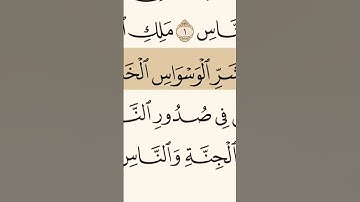 ٱلنَّاسِ ١ مَلِكِ
شَرِّ ٱلْوَسْوَاسِ ٱلْخَ
فِى صُدُورِ ٱلنَّ
ٱلْجِنَّةِ وَٱلنَّاسِ